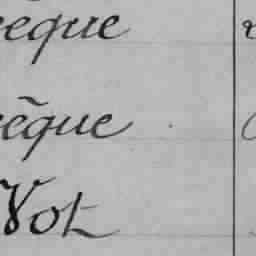 èque
èque
Vot